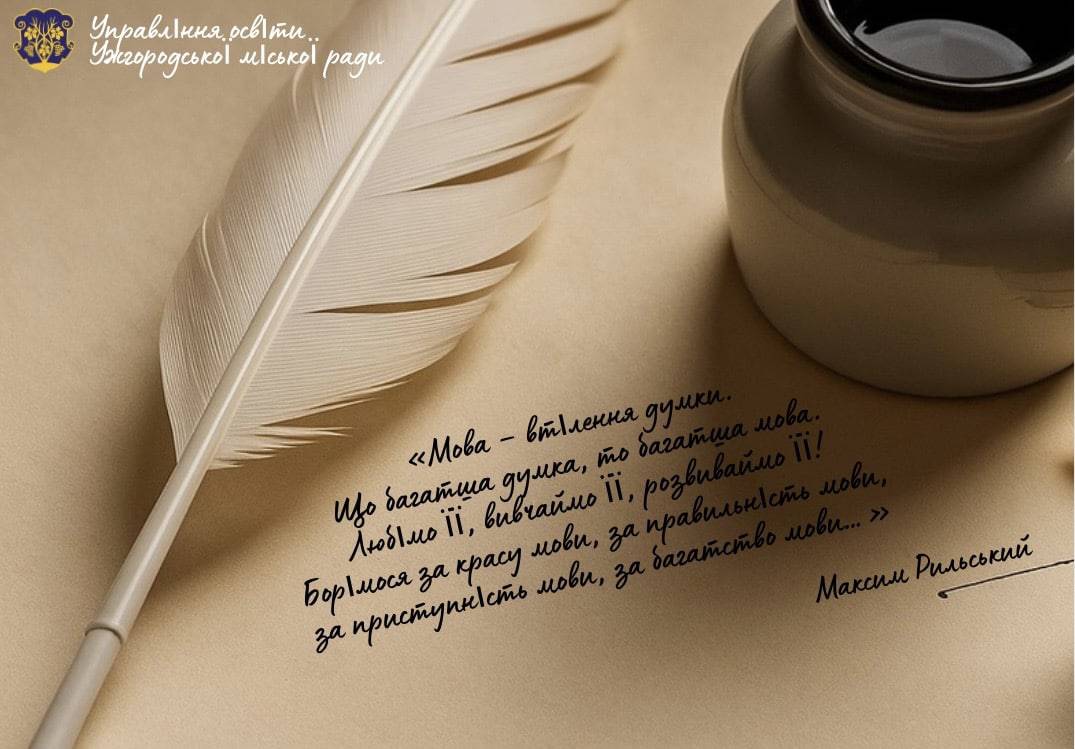 Управління освіти
Ужгородської міської ради
«Мова – втілення думки.
Що багатша думка, то багатша мова.
Любімо її, вивчаймо її, розвиваймо її!
Борімося за красу мови, за правильність мови,
за приступність мови, за багатство мови... »
Максим Рильський